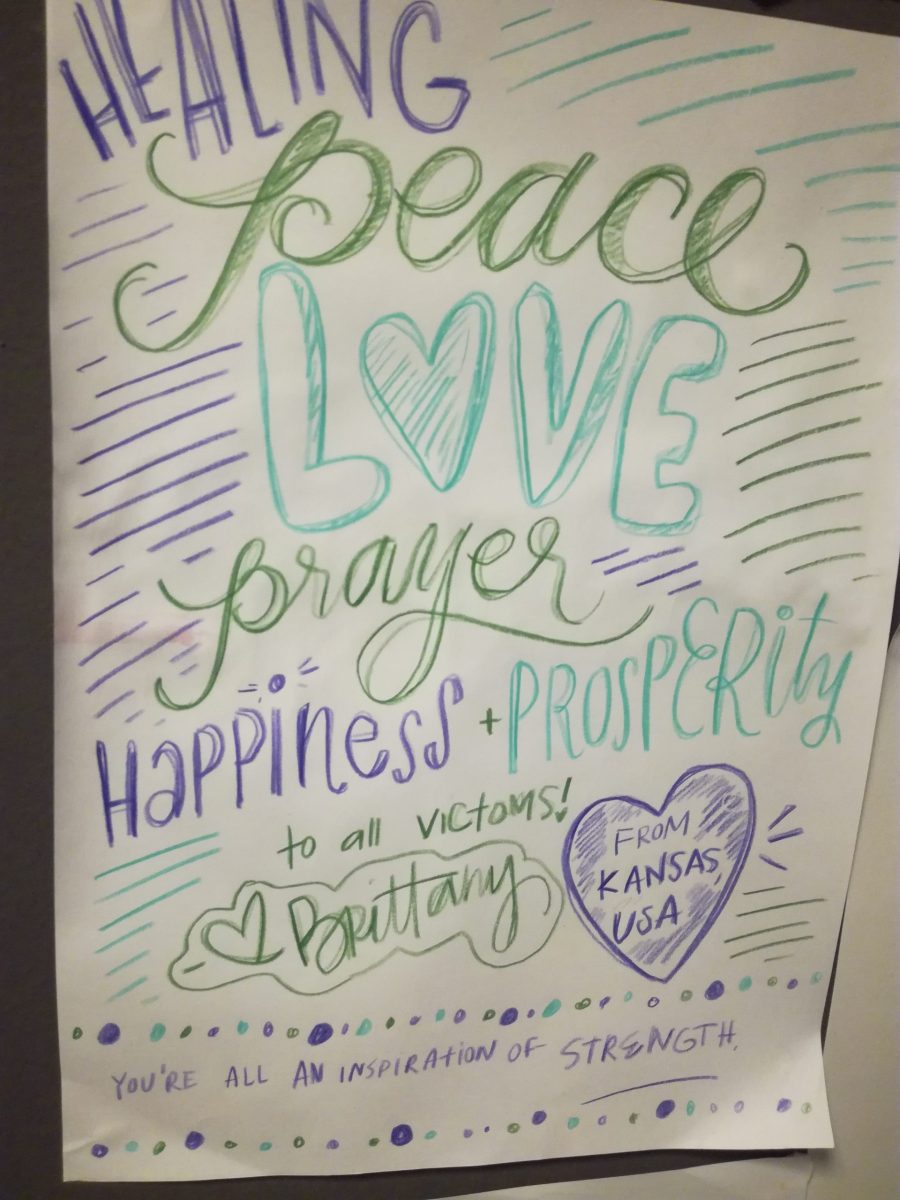 HEALING
peace
LOVE
prayer
Happiness + PROSPERity
to all victoms!
♡ Brittany
FROM
KANSAS,
USA
YOU'RE ALL AN INSPIRATION OF STRENGTH.